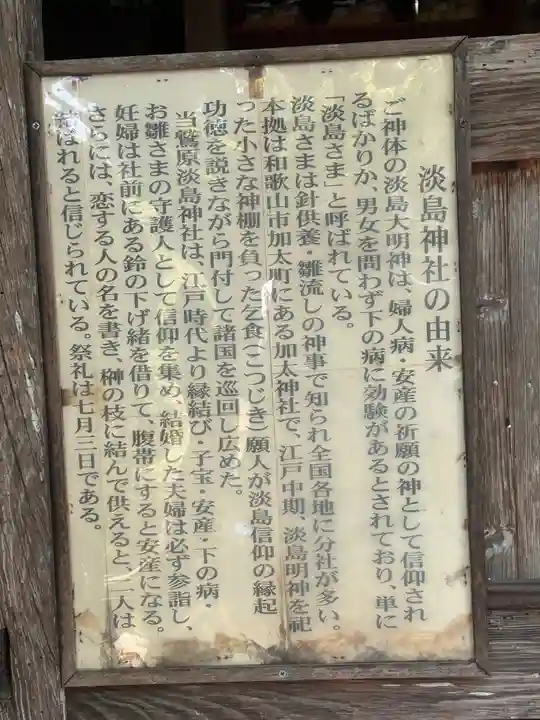 淡島神社の由来
ご神体の淡島大明神は、婦人病・安産の祈願の神として信仰され
るばかりか、男女を問わず下の病に効験があるとされており、単に
「淡島さま」と呼ばれている。
淡島さまは針供養・雛流しの神事で知られ全国各地に分社が多い。
本拠は和歌山市加太町にある加太神社で、江戸中期、淡島明神を祀
った小さな神棚を負った乞食(こつじき)願人が淡島信仰の縁起
功徳を説きながら門付して諸国を巡回し広めた。
当鷲原淡島神社は、江戸時代より縁結び・子宝・安産・下の病・
お雛さまの守護人として信仰を集め、結婚した夫婦は必ず参詣し、
妊婦は社前にある鈴の下げ緒を借りて、腹帯にすると安産になる。
さらには、恋する人の名を書き、榊の枝に結んで供えると、二人は
結ばれると信じられている。祭礼は七月三日である。